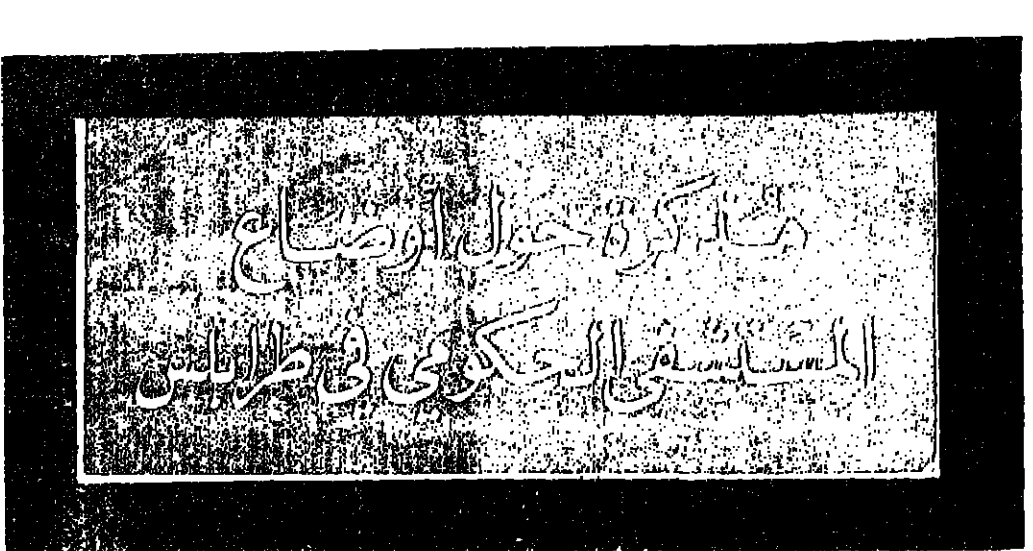 مذكرة حول أوضاع
المستشفى الحكومي في طرابلس